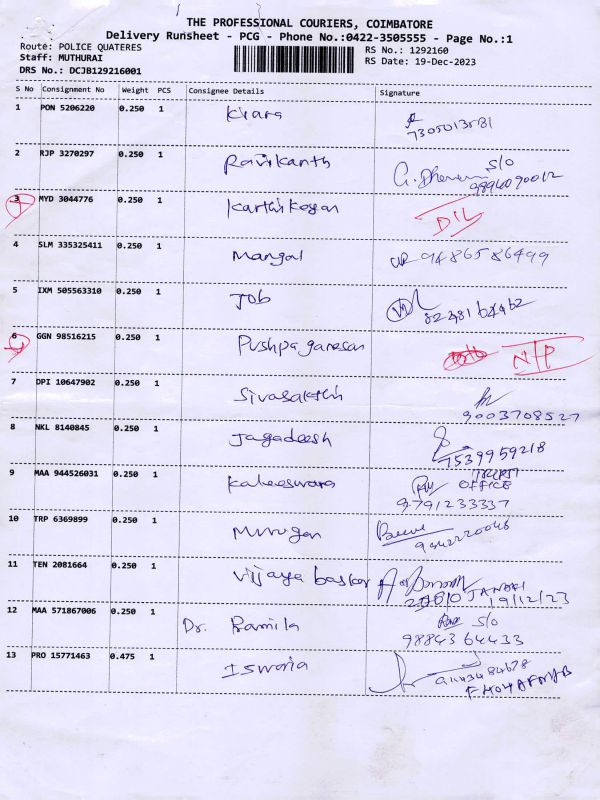 THE PROFESSIONAL COURIERS, COIMBATORE
Delivery Runsheet - PCG - Phone No.:0422-3505555 - Page No.:1
Route: POLICE QUATERES
RS No.: 1292160
Staff: MUTHURAI
RS Date: 19-Dec-2023
DRS No.: DCJB129216001
S No Consignment No Weight PCS Consignee Details Signature
1 PON 5206220 0.250 1 Kiara
7305013581
2 RJP 3270297 0.250 1 Ravikanth
S/O
3 MYD 3044776 0.250 1 Karthikeyan D/L
4 SLM 335325411 0.250 1 Mangal 9486586499
5 IXM 505563310 0.250 1 Job
6 GGN 98516215 0.250 1 Pushpaganesan N/P
7 DPI 10647902 0.250 1 Sivasakthi
9003708527
8 NKL 8140845 0.250 1 Jagadeesh
7539959218
9 MAA 944526031 0.250 1 Kaleeswara
OFFICE
9791233337
10 TRP 6369899 0.250 1 Murugan
11 TEN 2081664 0.250 1 Vijjaya baskar
JANAKI
19/12/23
12 MAA 571867006 0.250 1 Dr. Ramila S/O
9884364433
13 PRO 15771463 0.475 1 Iswaria
9443484678